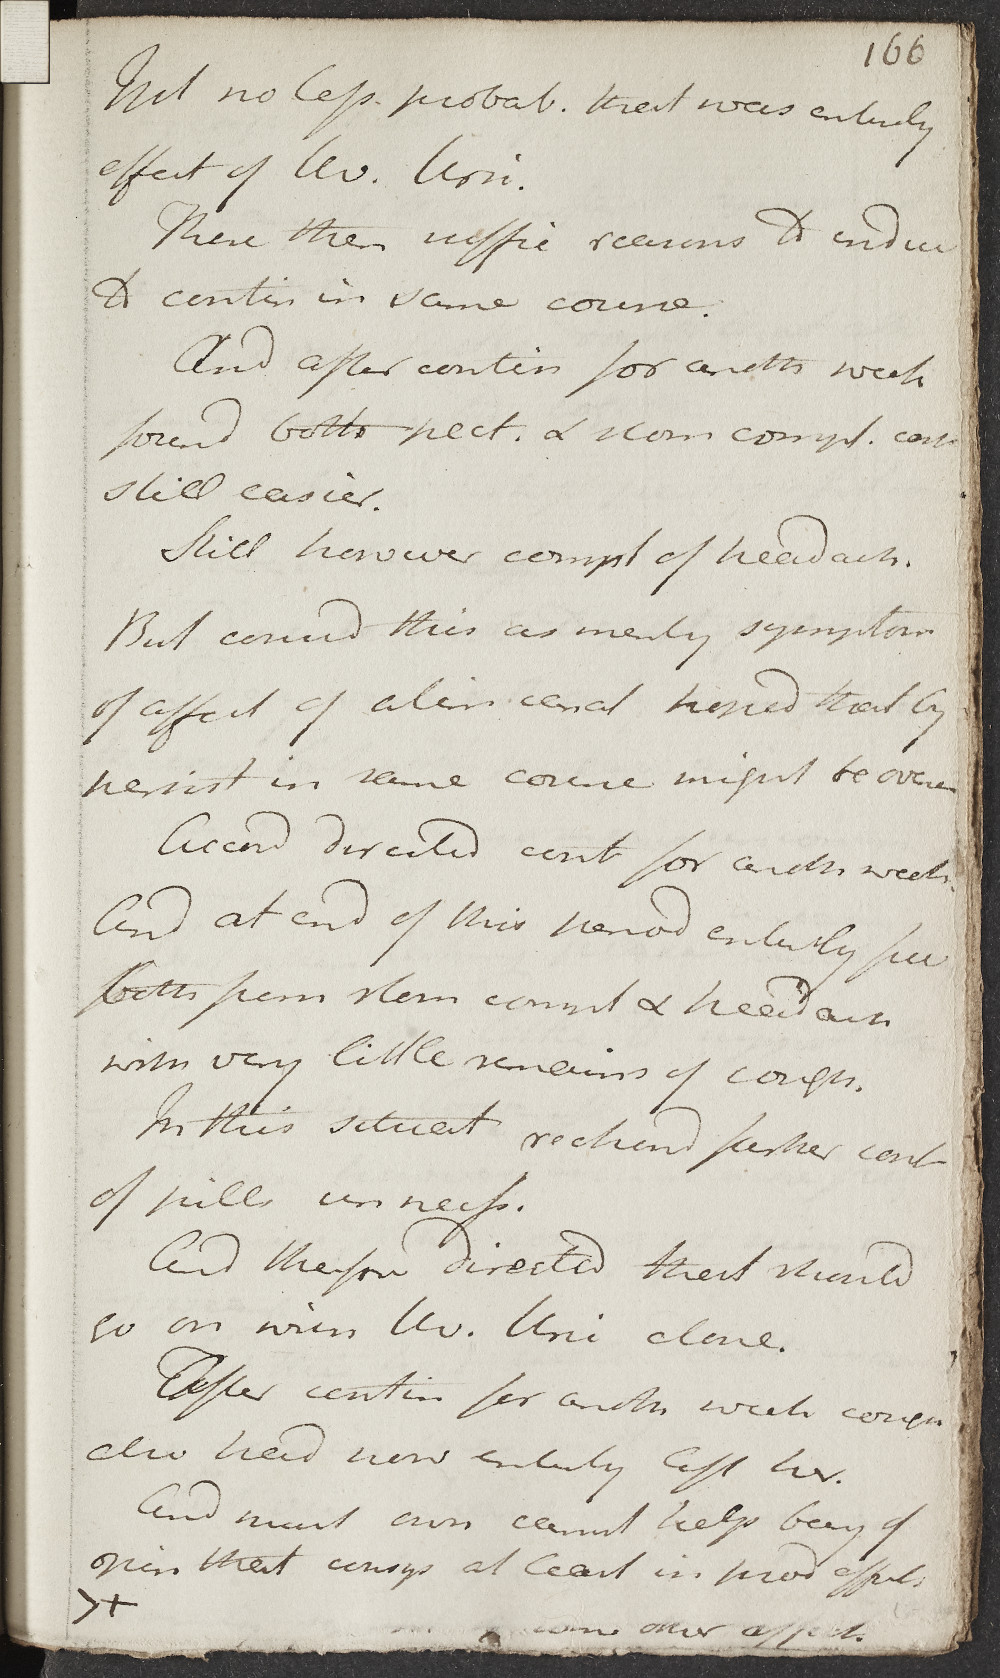 166
Yet no less probab. that was entirely
effect of Uv. Ursi.
There then suffic reasons to endu
to contin in same course.
And after contin for anoth week
found both pect. & stom compl.
still easier.
Still however compl of headach.
But consid this as merely symptom
of affect of alim canal hoped that by
persist in same course might be overc
Accord directed cont for anoth week.
And at end of this period entirely free
both from stom compl & headach
with very little remains of cough.
In this situat reckond further cont
of pills unness.
And therfor directed that should
go on with Uv. Ursi alone.
After contin for anoth week cough
also had now entirely left her.
And must own cannot help being of
opin that consp at least in prod effect
>+
some other affect.